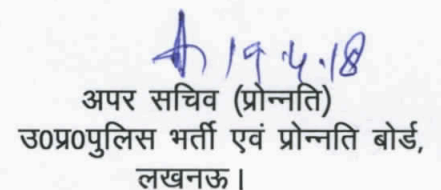 19.4.18
अपर सचिव (प्रोन्नति)
उ0प्र0पुलिस भर्ती एवं प्रोन्नति बोर्ड,
लखनऊ।